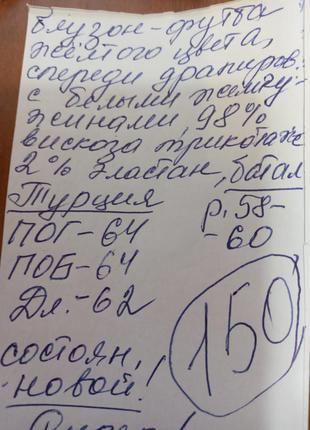 блузон-футба
жёлтого цвета,
спереди драпиров.
с белыми жемчу-
жинами, 98%
вискоза трикотаж
2% эластан, батал
Турция р. 58-
ПОГ-64 -60
ПОБ-64
Дл.-62
150
состоян,
новой!